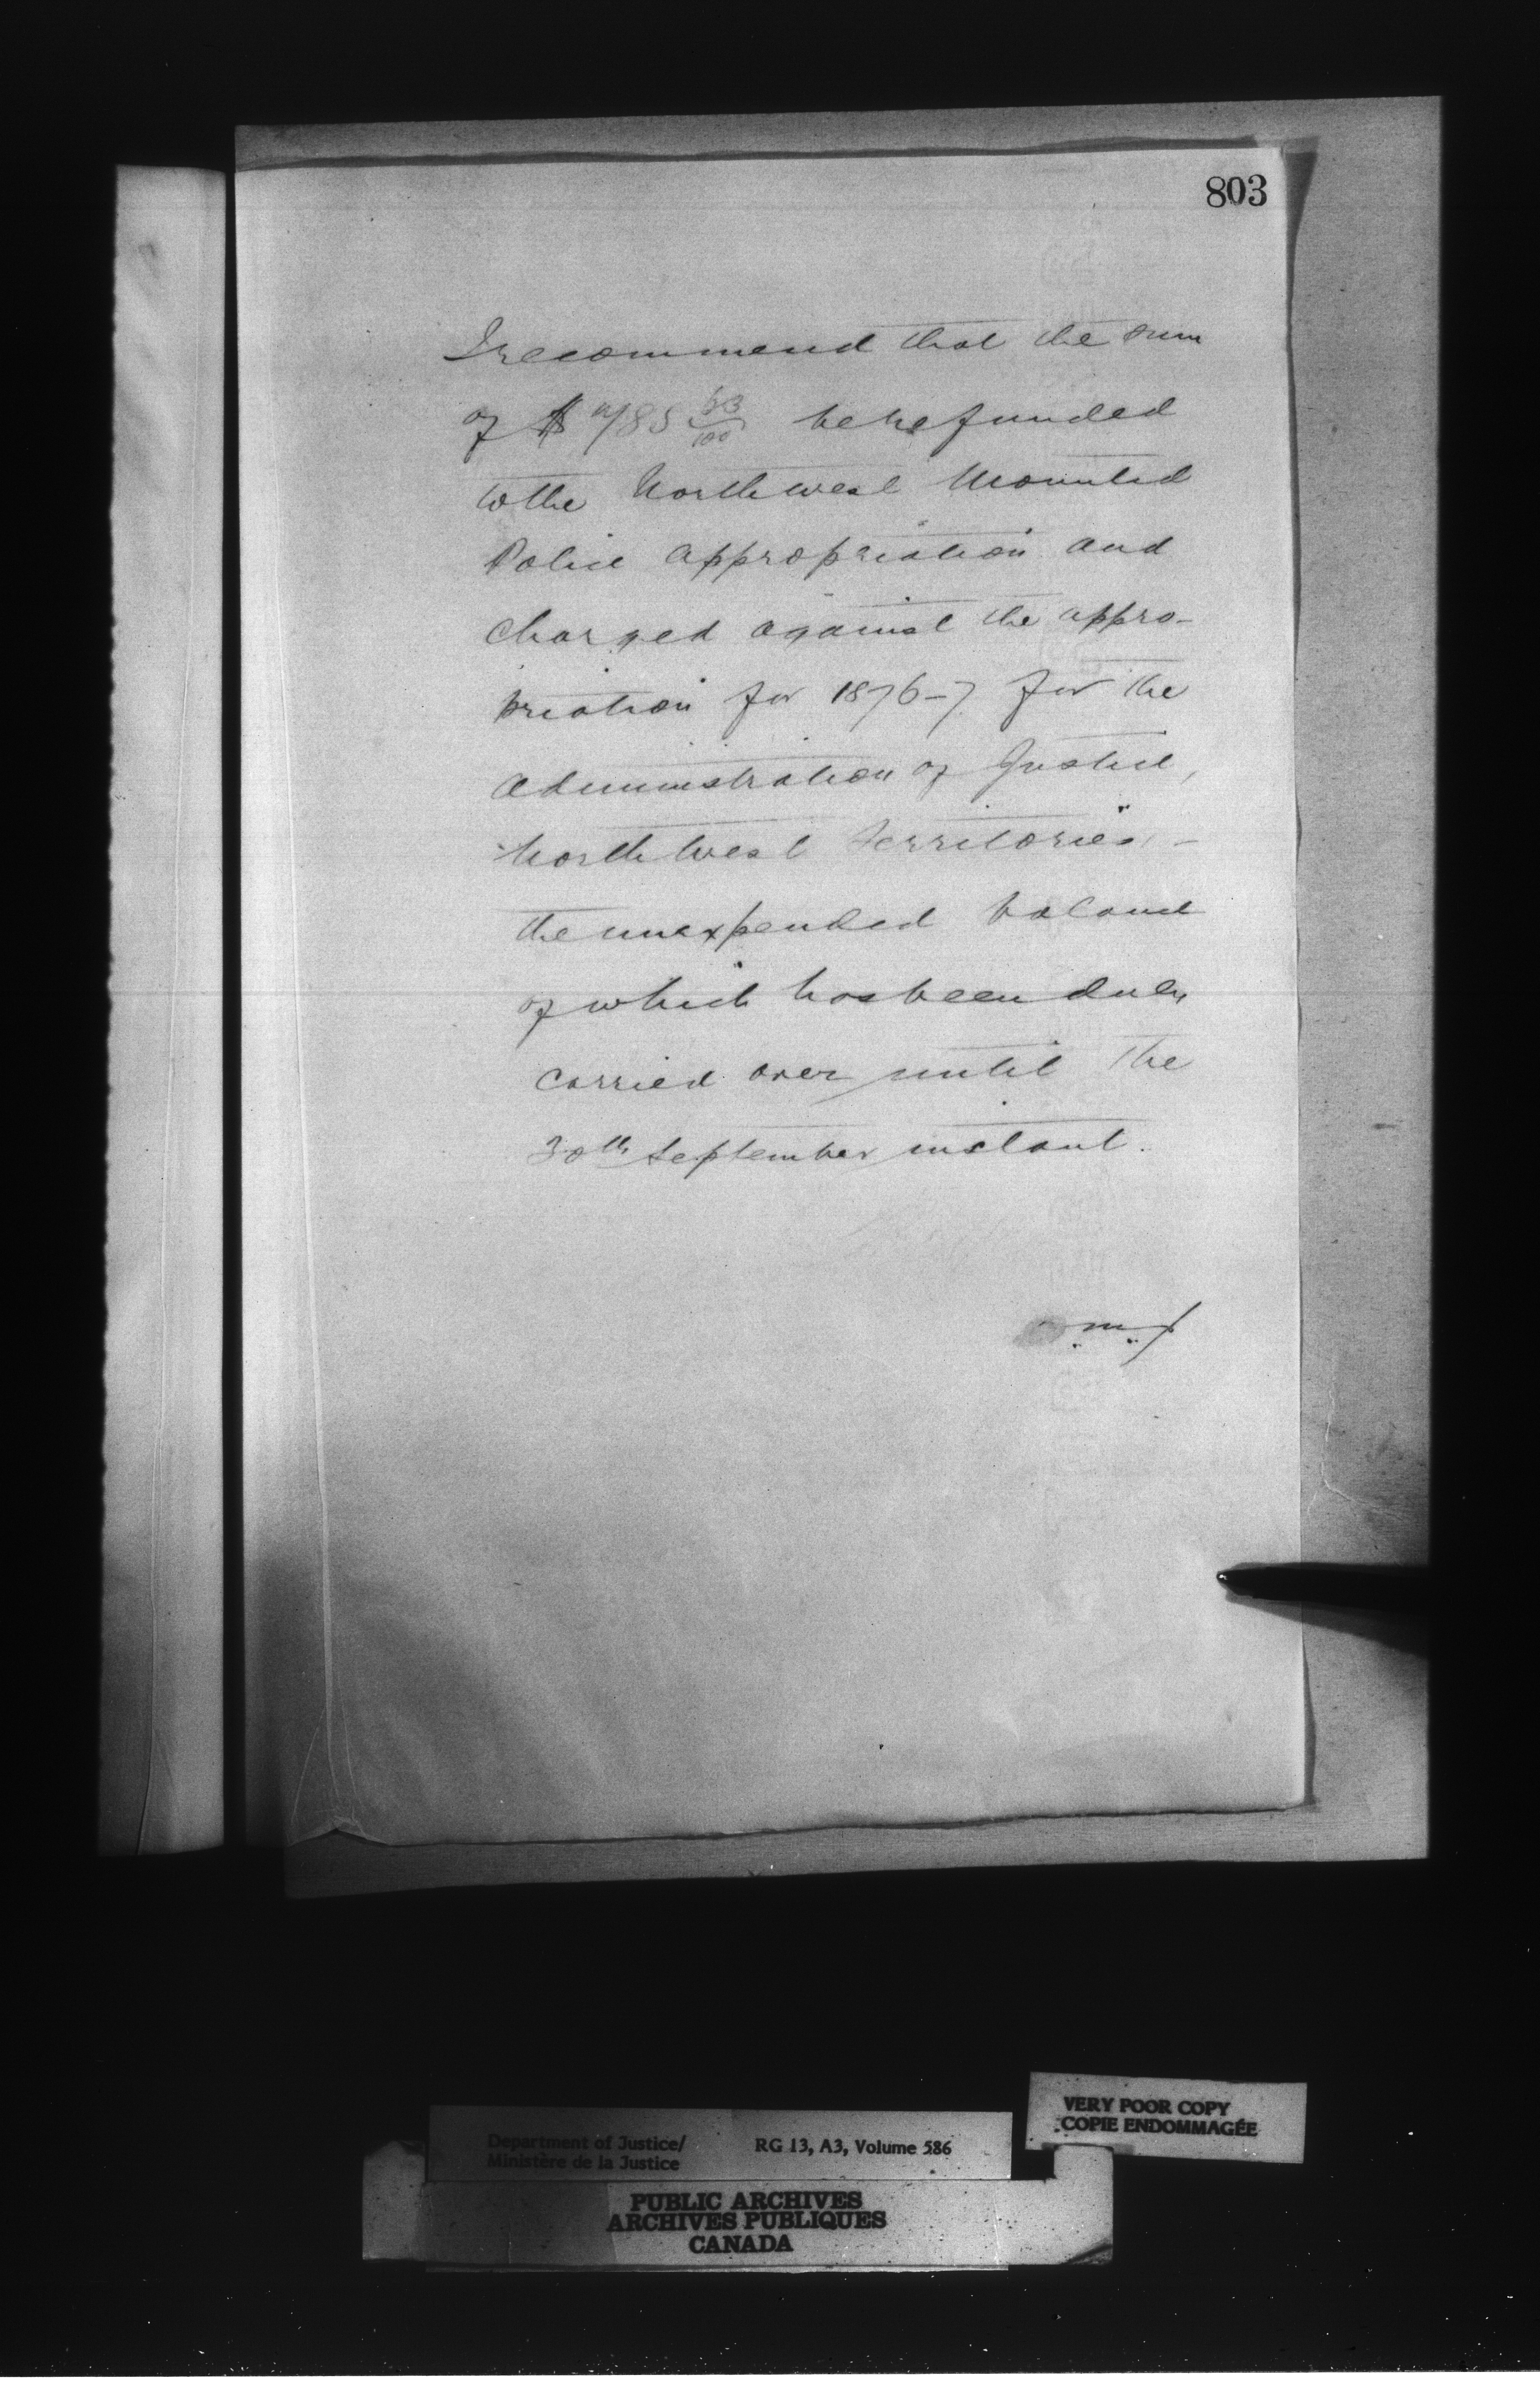 803
I recommend that the sum
of $ 485 53/100 be refunded
to the North west Mounted
Police appropriation and
charged against the appro-
priation for 1876-7 for the
administration of Justice,
North West Territories, -
the unexpended balance
of which has been duly
carried over until the
30th September instant.
Department of Justice/ RG 13, A3, Volume 586
Ministère de la Justice
VERY POOR COPY
COPIE ENDOMMAGÉE
PUBLIC ARCHIVES
ARCHIVES PUBLIQUES
CANADA